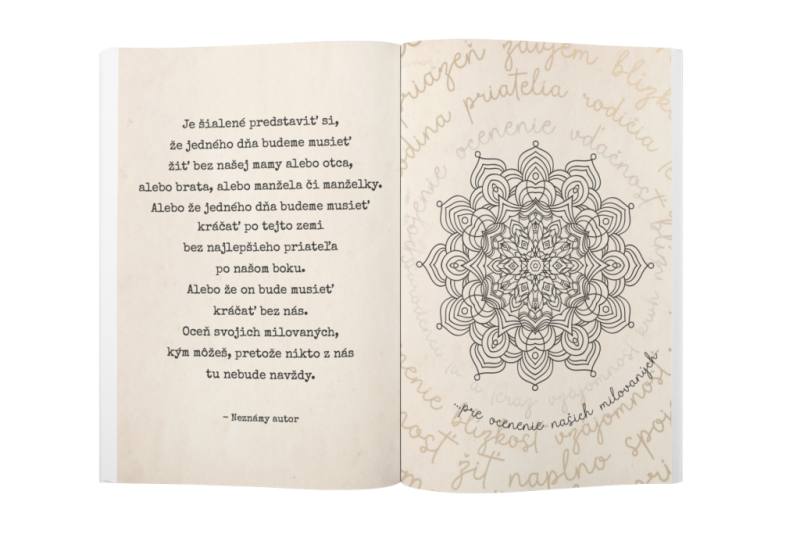 Je šialené predstaviť si,
že jedného dňa budeme musieť
žiť bez našej mamy alebo otca,
alebo brata, alebo manžela či manželky.
Alebo že jedného dňa budeme musieť
kráčať po tejto zemi
bez najlepšieho priateľa
po našom boku.
Alebo že on bude musieť
kráčať bez nás.
Oceň svojich milovaných,
kým môžeš, pretože nikto z nás
tu nebude navždy.
– Neznámy autor
priazeň záujem
priatelia rodičia
spojenie ocenenie vďačnosť
a teraz vzájomnosť
...pre ocenenie našich milovaných
blízkosť vzájomnosť
žiť naplno